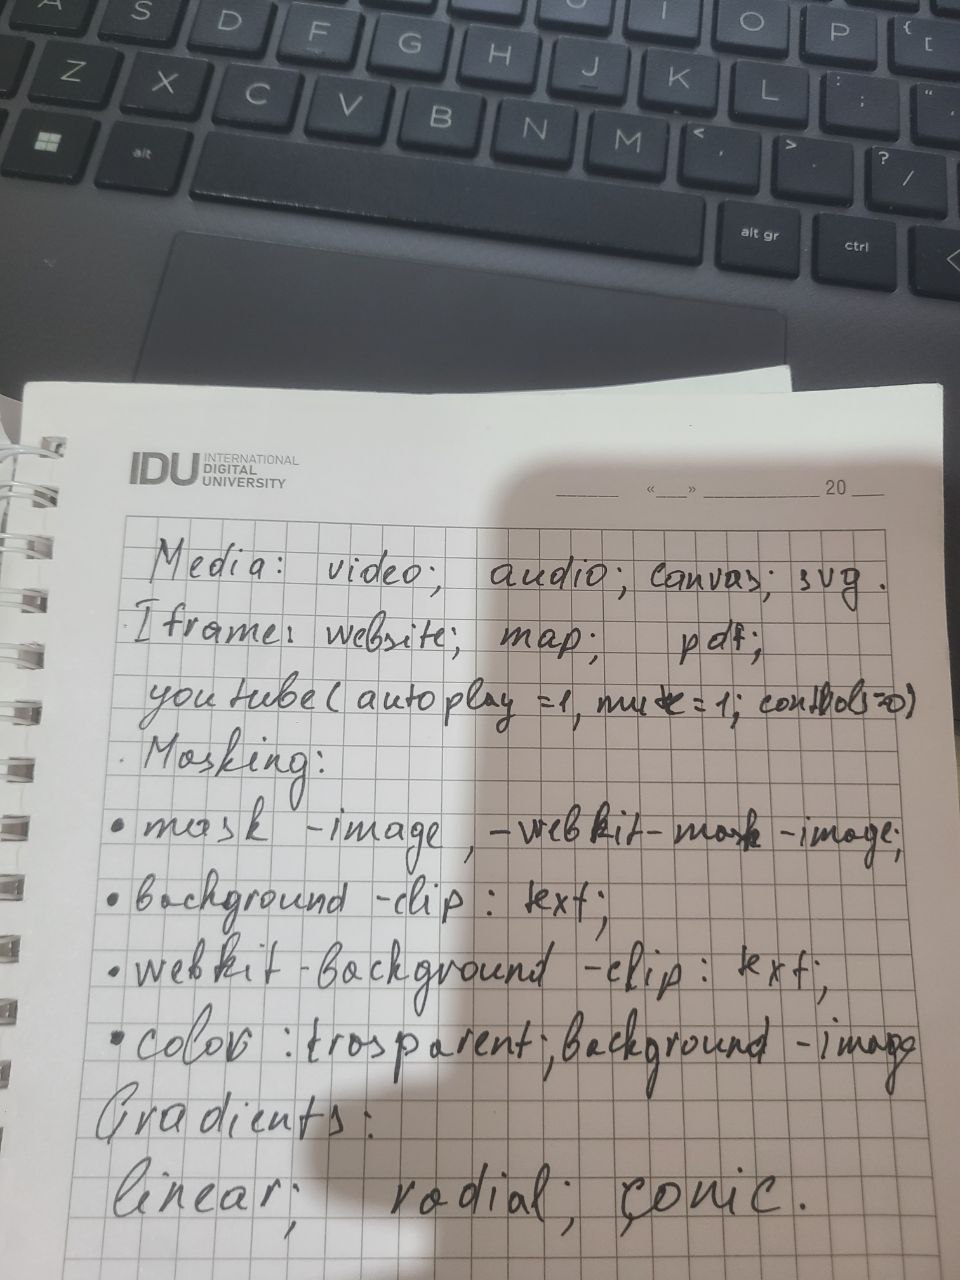 A S D F G H J K L : ;
U I O P { [
Z X C V B N M < , > . ? /
alt alt gr ctrl
IDU INTERNATIONAL
DIGITAL
UNIVERSITY
______ «___» ____________ 20 ___
Media: video; audio; canvas; svg.
Iframe: website; map; pdf;
youtube( autoplay =1, mute=1; controls=0)
Masking:
• mask -image, -webkit-mask-image;
• background -clip: text;
• webkit-background -clip: text;
• color: trasparent; background -image
Gradients:
linear; radial; conic.